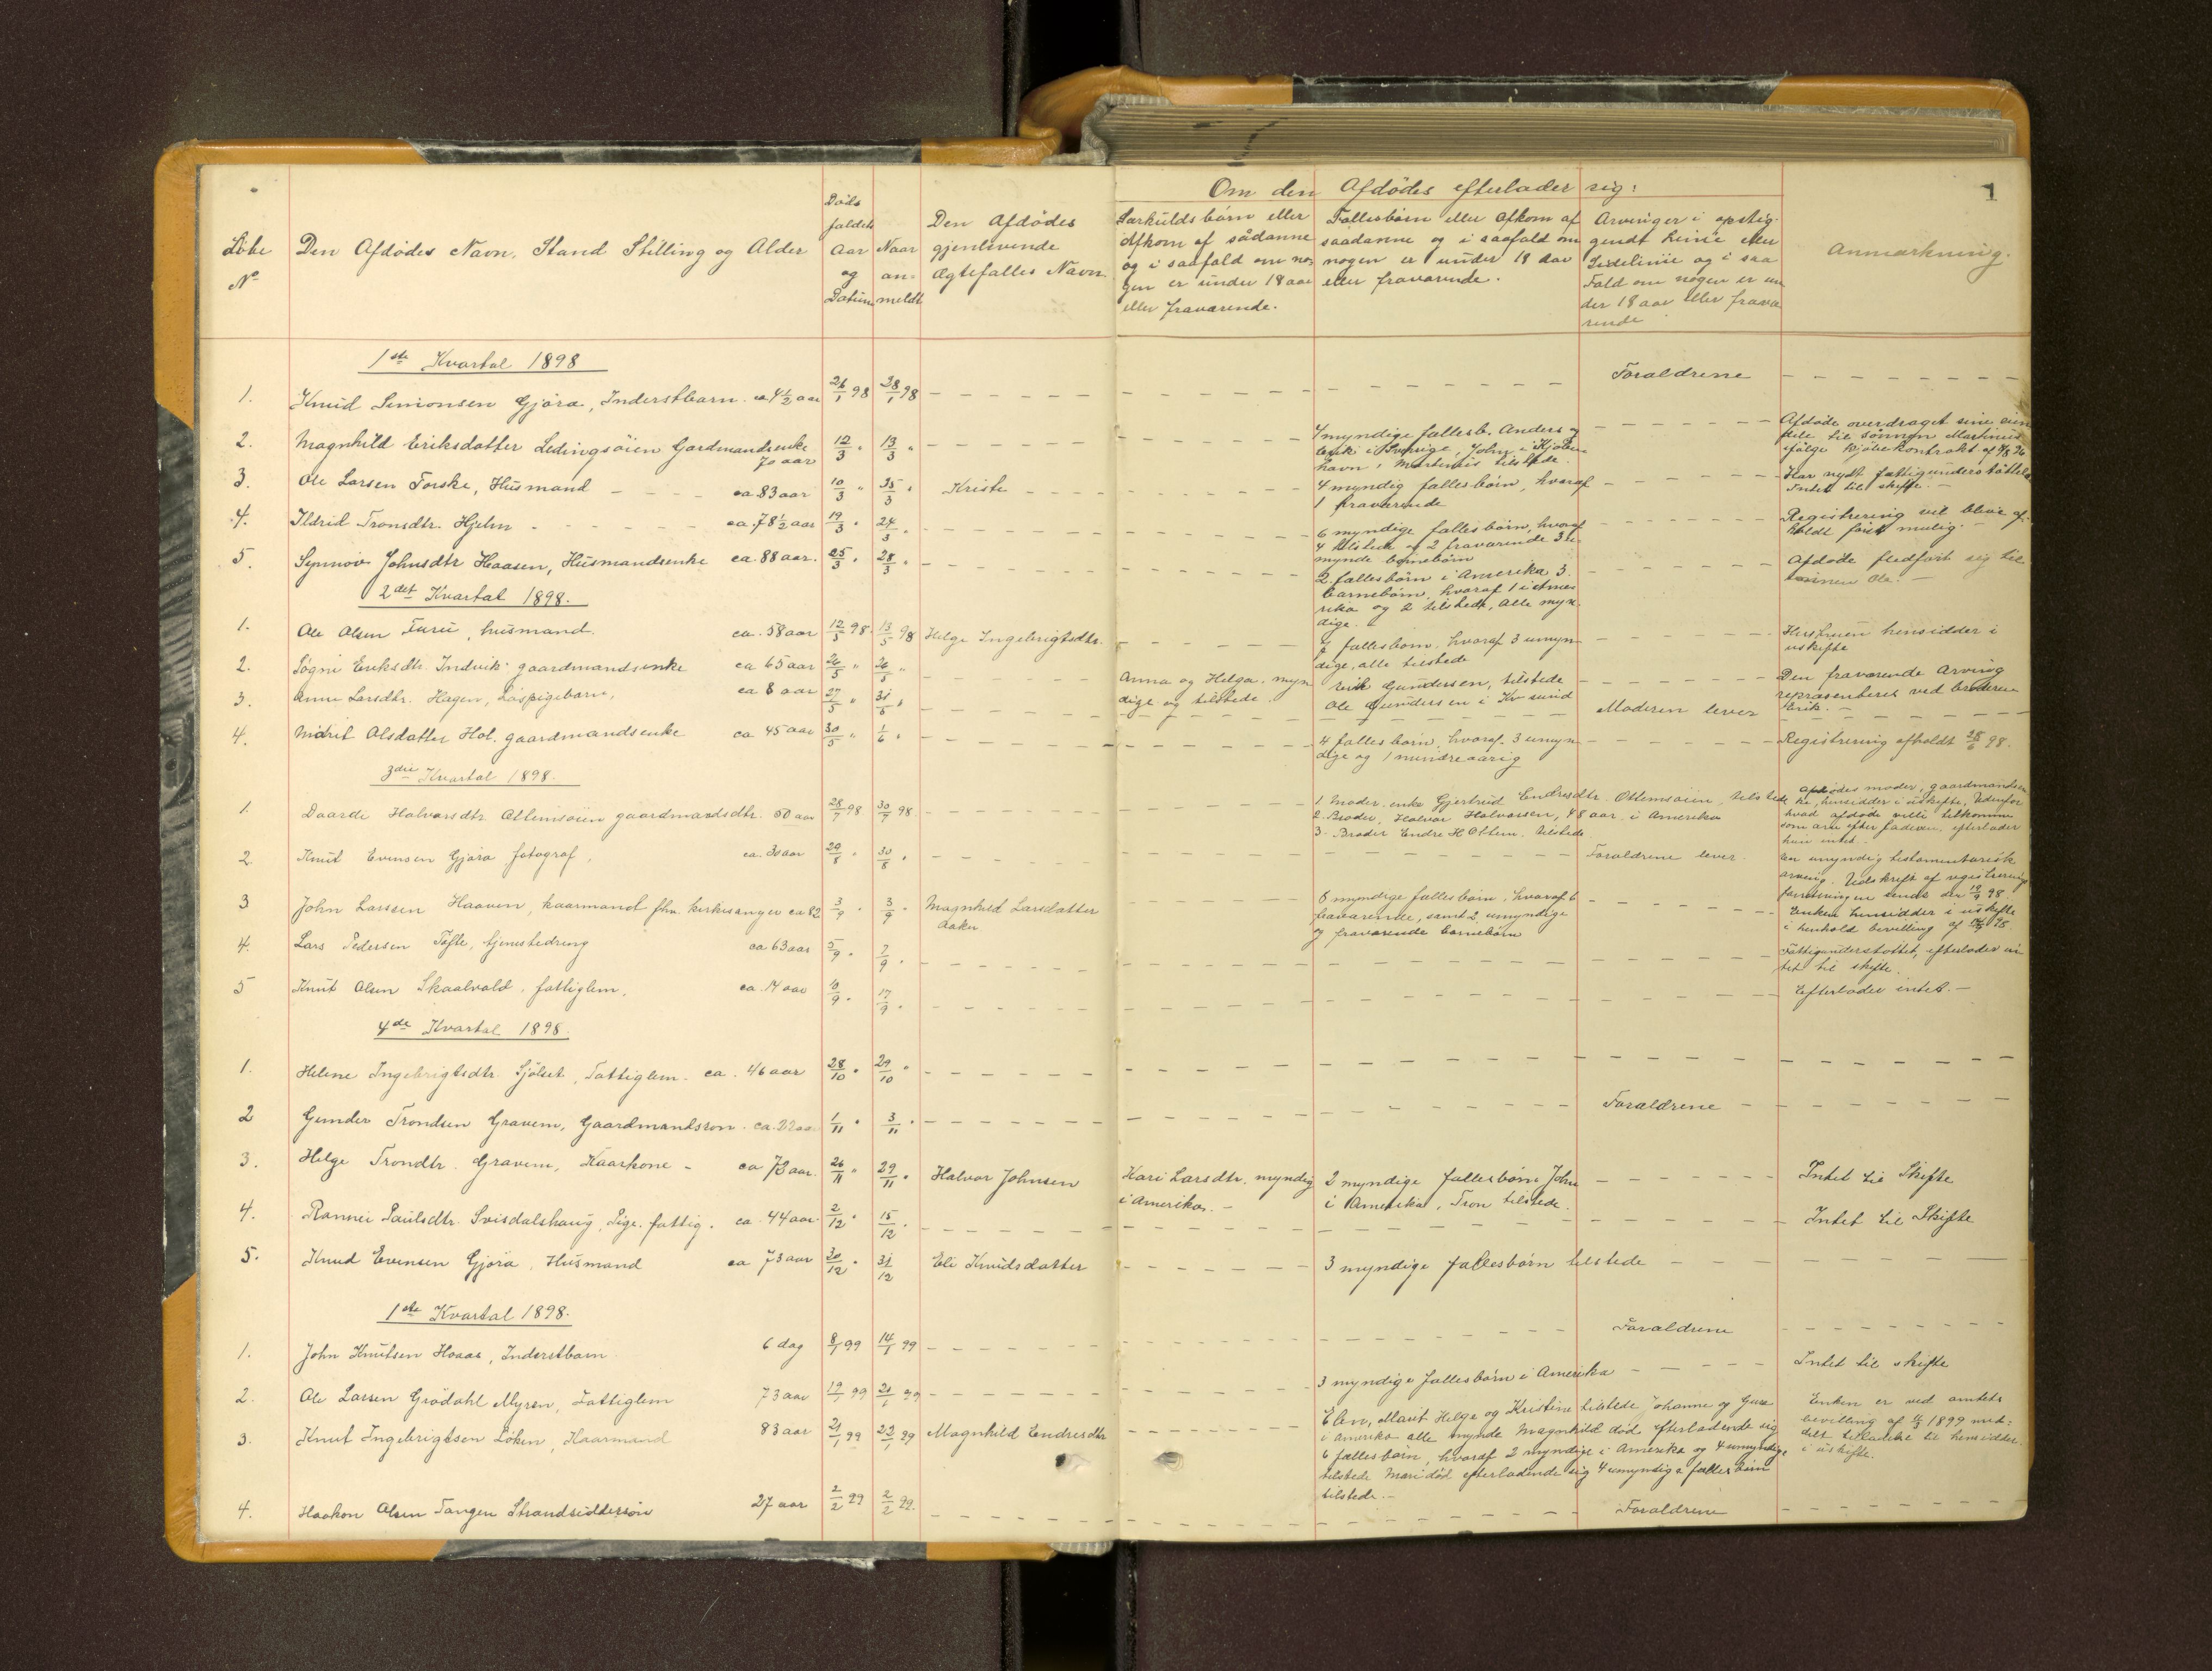 1
Om den Afdødes efterlader sig:
Løbe No
Den Afdødes Navn, Stand Stilling og Alder
Døds faldets Aar og Datum
Naar an= meldt
Den Afdødes gjenlevende Ægtefælles Navn
Særkuldsbørn eller Afkom af sådanne og i saafald om no= gen er under 18 aar eller fraværende.
Fællesbørn eller Afkom af saadanne og i saafald om nogen er under 18 Aar eller fraværende.
Arvinger i opstig= gendt Linie eller Sidelinie og i saa Fald om nogen er un der 18 aar eller fravæ rende
Anmærkning.
1ste Kvartal 1898
1. Knud Simonsen Gjøra, Inderstbarn. ca 4½ aar 26/1 98 28/1 98 Forældrene
2. Magnhild Eriksdatter Ledingsøien Gardmandsenke 70 aar 12/3 " 13/3 " 4 myndige fællesb. Anders og Erik i Sverige, John i Kjøben havn, Martinus tilstede. Afdøde overdraget sine eien dele til sønnen Martinus ifølge Kjøbekontrakt af
3. Ole Larsen Forske, Husmand ca 83 aar 10/3 " 35/3 " Kristi 4 myndig fællesbørn, hvoraf 1 fraværende Har nydt fattigunderstøttelse Intet til skifte.
4. Ildrid Tronsdtr. Hjelm ca. 78½ aar 19/3 " 24/3 " 6 myndige fællesbørn, hvoraf 4 tilstede og 2 fraværende 3 u- mynde børnebørn Registrering vil blive af- holdt først mulig.
5. Synnøv Johnsdtr Haasen, Husmandsenke ca. 88 aar. 25/3 " 28/3 " 2 fællesbørn i Amerika 3 barnebørn, hvoraf 1 i Ame rika og 2 tilstede, alle myn dige. Afdøde fledført sig til sønnen Ole.
2det Kvartal 1898.
1. Ole Olsen Furu, husmand. ca. 58 aar 12/5 98. 13/5 98 Helge Ingebrigtsdtr. 7 fællesbørn, hvoraf 3 umyn dige, alle tilstede Husfruen hensidder i uskifte
2. Søgni Eriksdtr. Indvik gaardmandsenke ca 65 aar 26/5 " 26/5 " Anna og Helga, myn dige og tilstede. Erik Gundersen, tilstede Ole Gundersen i Kr sund Den fraværende Arving repræsenteres ved broderen Erik.
3. Anne Larsdtr. Hagen, Løspigebarn, ca 8 aar 27/5 " 31/5 " Moderen lever
4. Mårit Olsdatter Hol. gaardmandsenke ca 45 aar 30/5 " 1/6 " 4 fællesbørn, hvoraf 3 umyn dige og 1 mindreaarig Registrering afholdt 28/6 98.
3die Kvartal 1898.
1. Daarde Halvorsdtr Ottemsøien gaardmandsdtr. 50 aar 28/7 98 30/7 98 1 Moder, enke Gjertrud Endresdtr. Ottemsøien, tilstede 2. Broder, Halvor Halvorsen, 48 aar, i Amerika 3. Broder Endre H Ottem, tilstede. Afdødes moder, gaardmandsen ke, hensidder i uskifte. Udenfor hvad afdøde ville tilkomme som arv efter faderen, efterlader hun intet.
2. Knut Evensen Gjøra fotograf, ca. 30 aar 29/8 " 30/8 " Forældrene lever. En umyndig testamentarisk arving. Udskrift af registrerings forretningen sendt den 19/9 98
3 John Larssen Haaven, kaarmand fhv. kirkesanger ca 82 3/9 " 3/9 " Magnhild Larsdatter Aaker 8 myndige fællesbørn, hvoraf 6 fraværende, samt 2 umyndige og fraværende barnebørn Enken hensidder i uskifte i henhold bevilling af
4. Lars Pedersen Tofte, tjenestedreng ca 63 aar 5/9 " 7/9 " Fattigunderstøttet, efterlader in tet til skifte.
5 Knut Olsen Skaalvold, fattiglem, ca. 14 aar 10/9 " 17/9 " Efterlader intet.
4de Kvartal 1898.
1. Helene Ingebrigtsdtr. Sjølset, Fattiglem. ca. 46 aar 28/10 " 29/10 "
2 Gunder Trondsen Gravem, Gaardmandssøn. ca. 22 aar 1/11 " 3/11 " Forældrene
3. Helge Trondtr. Gravem, Kaarkone ca 73 aar. 26/11 " 29/11 " Halvor Johnsen Kari Larsdtr. myndig i Amerika. 2 myndige fællesbørn John i Amerika, Tron tilstede. Intet til Skifte
4. Rannei Paulsdtr. Svisdalshaug, Pige, fattig. ca. 44 aar. 2/12 " 15/12 " Intet til Skifte
5. Knud Evensen Gjøra, Husmand ca 73 aar 30/12 " 31/12 Eli Knudsdatter 3 myndige fællesbørn tilstede
1ste Kvartal 1898.
1. John Knutsen Hoaas, Inderstbarn 6 dag 8/1 99 14/1 99 Forældrene
2. Ole Larsen Grødahl Myren, Fattiglem 73 aar 19/1 99 21/1 99 3 myndige fællesbørn i Amerika Intet til skifte
3. Knut Ingebrigtsen Løken, Kaarmand 83 aar 21/1 99 23/1 99 Magnhild Endresdtr Elen, Marit Helge og Kristine tilstede, Johanne og Guro i Amerika alle mynde Magnhild død efterladende sig 6 fællesbørn, hvoraf 2 myndige i Amerika og 4 umyndige tilstede Mari død efterladende sig 4 umyndige fællesbørn tilstede. Enken er ved amtets bevilling af 1899 med= delt tilladelse til hensidden i uskifte.
4. Haakon Olsen Tangen Strandsiddersøn 27 aar 2/2 99 2/2 99. Forældrene